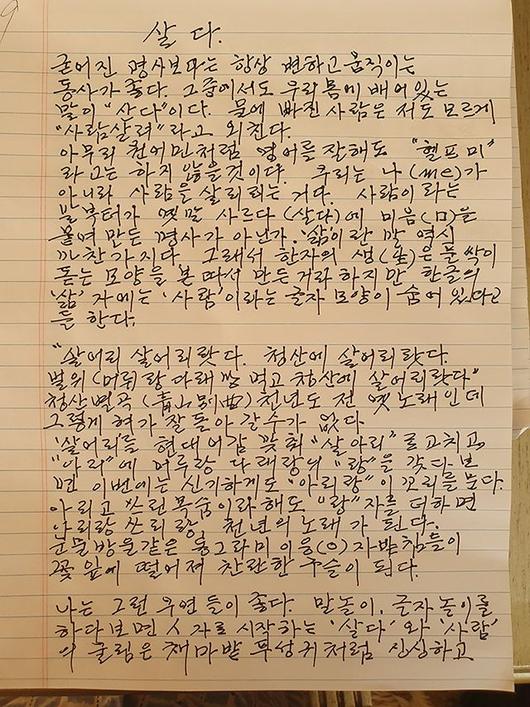 살다.
굳어진 명사보다는 항상 변하고 움직이는
동사가 좋다. 그중에서도 우리 몸에 배어있는
말이 "산다"이다. 물에 빠진 사람은 저도 모르게
"사람살려"라고 외친다.
아무리 원어민처럼 영어를 잘해도 "헬프 미"
라고는 하지 않을것이다. 우리는 나(me)가
아니라 사람을 살리려는 거다. 사람이라는
말부터가 옛말 사르다(살다)에 미음(ㅁ)을
붙여 만든 명사가 아닌가. '삶'이란 말 역시
마찬가지다. 그래서 한자의 생(生)은 풀싹이
돋는 모양을 본따서 만든거라 하지만 한글의
'삶'자에는 '사람'이라는 글자 모양이 숨어 있다고
들 한다.
"살어리 살어리랏다. 청산에 살어리랏다.
멀위(머루)랑 다래랑 먹고 청산에 살어리랏다"
청산별곡(靑山別曲) 천년도 전 옛노래인데
그렇게 혀가 잘 돌아갈수가 없다.
'살어리'를 현대어감 맞춰 "살아리"로 고치고,
"아리"에 머루랑 다래랑의 "랑"을 갖다 보
면 이번에는 신기하게도 "아리랑"이 꼬리를 문다.
아리고 쓰린 목숨이라해도 "랑"자를 더하면
아리랑 쓰리랑, 천년의 노래가 된다.
눈물방울같은 동그라미 이응(ㅇ)자 받침들이
꽃 앞에 떨어져 찬란한 구슬이 된다.
나는 그런 우연들이 좋다. 말놀이, 글자놀이를
하다보면 ㅅ자로 시작하는 '살다'와 '사람'
의 울림은 채마밭 푸성귀처럼 싱싱하고